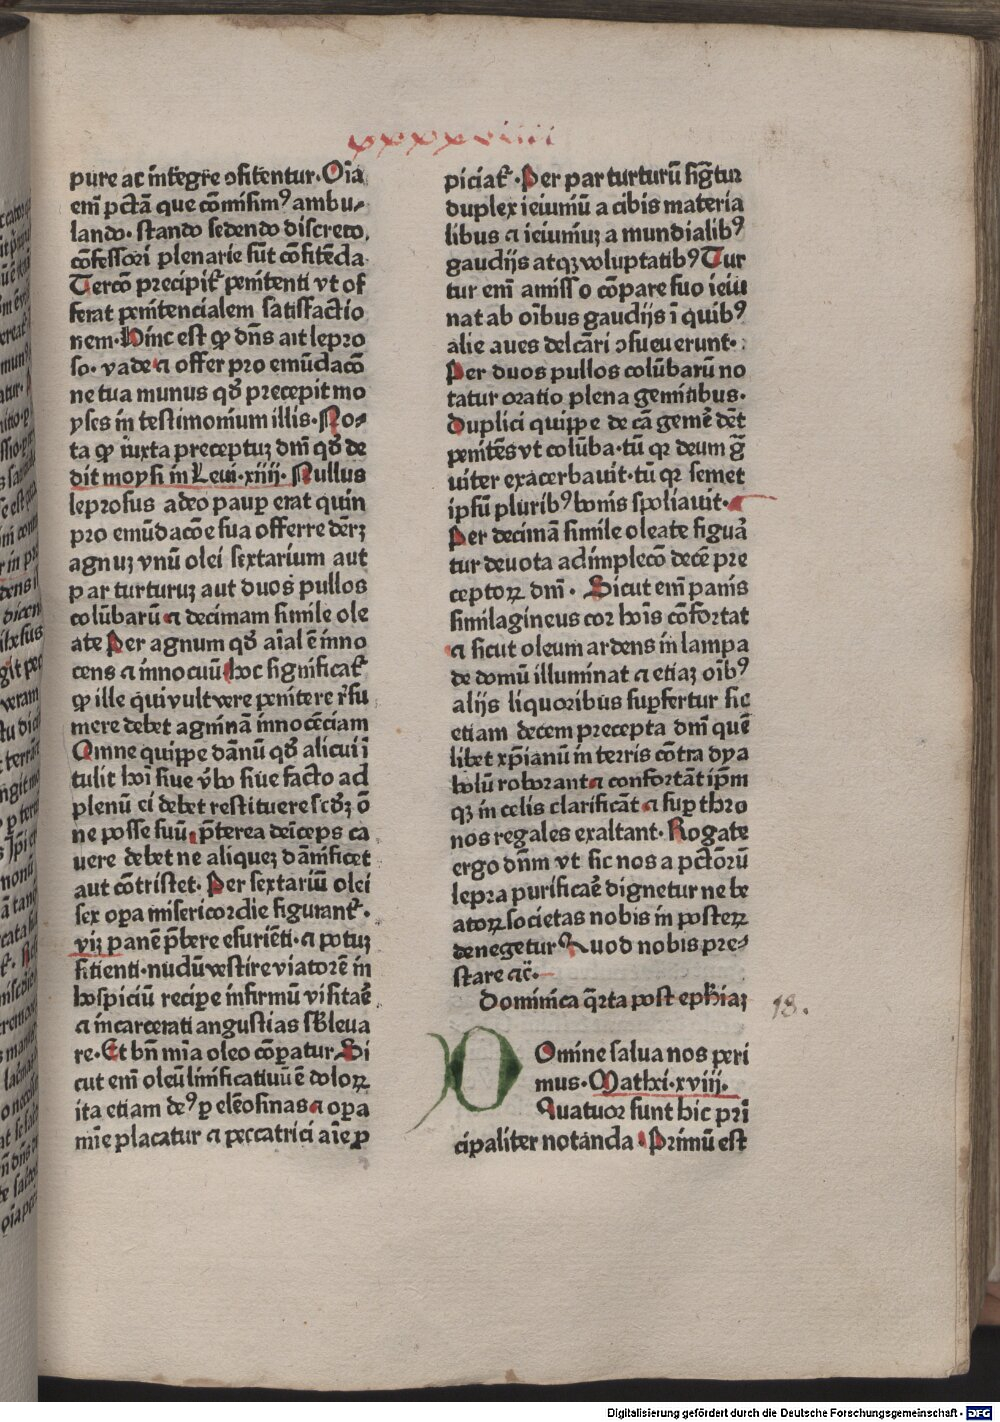 xxxxviiii
pure ac īn̄tegre ɔfitentur. Oīa
em̄ pctā que cōmisimꝰ ambu-
lando. stando sedendo discreto
cōfessori plenarie sūt cōfitēda
Tercō precipit̉ penitenti vt of
ferat penitencialem satisfactio
nem. Hinc est ꝙ dn̄s ait lepro
so. vade ⁊ offer pro emūdacō
ne tua munus qd̓ precepit mo
yses in testimonium illis. No-
ta ꝙ iuxta preceptuꝫ dn̄i qd̓ de
dit moysi in Leui. xiiij. Nullus
leprosus adeo paup̲ erat quin
pro emūdacōe sua offerre dērꝫ
agnuꝫ vnū olei sextarium aut
par turturuꝫ aut duos pullos
colūbarū ⁊ decimam simile ole
ate Per agnum qd̓ aīal ē inno
cens ⁊ innocuū hoc significat̉
ꝙ ille qui vult vere penitere r̄su
mere debet agninā innocēciam
Omne quippe dānū qd̓ alicui ī
tulit hoī siue v̓bo siue facto ad
plenū ei debet restituere scd̓ꝫ ō
ne posse suū p̄terea deīceps ca
uere debet ne aliqueꝫ dāmificet
aut cōtristet. Per sextariū olei
sex oꝑa misericordie figurant̉.
viꝫ panē p̄bere esuriēti. ⁊ potuꝫ
sitienti. nudū vestire viatorē in
hospiciū recipe infirmū visitaē
⁊ incarcerati angustias sb̓leua
re. Et bn̄ mīa oleo cōꝑatur Si
cut em̄ oleū linificatiuū ē dolorꝝ
ita etiam deꝰ ꝑ elēosinas ⁊ oꝑa
mīe placatur ⁊ peccatrici aīe ꝑ
piciat̉. Per par turturū sig̅tur
duplex ieiuniū a cibis materia
libus ⁊ ieiuniuꝫ a mundialibꝰ
gaudijs atqꝫ voluptatibꝰ Tur
tur em̄ amisso cōpare suo ieiu
nat ab oībus gaudijs ī quibꝰ
alie aues delcāri ɔsueuerunt.
Per duos pullos colūbarū no
tatur oratio plena gemitibus.
Duplici quippe de cā gemē dēt
penitēs vt colūba. tū qꝛ deum g̅
uiter exacerbauit. tū qꝛ semet
ipsū pluribꝰ bonis spoliauit.
Per decimā simile oleate figurā
tur deuota adimplecō decē pre
ceptorꝝ dn̄i. Sicut em̄ panis
similagineus cor hoīs cōfortat
⁊ sicut oleum ardens in lampa
de domū illuminat ⁊ etiaꝫ oībꝰ
alijs liquoribus suꝑfertur sic
etiam decem precepta dn̄i quē
libet xp̄ianū in terris cōtra dya
bolū roborant ⁊ confortāt ip̄m
qꝫ in celis clarificāt ⁊ sup̲ thro
nos regales exaltant. Rogate
ergo dn̄m vt sic nos a pctōrū
lepra purificaē dignetur ne be
atorꝝ societas nobis in posterꝝ
denegetur Quod nobis pre-
stare ⁊c̄.
Dominica q̄rta post ephiaꝫ
18.
Domine salua nos peri
mus. Mathei. xviij.
Quatuor sunt hic prī
cipaliter notanda Primū est
Digitalisierung gefördert durch die Deutsche Forschungsgemeinschaft - DFG